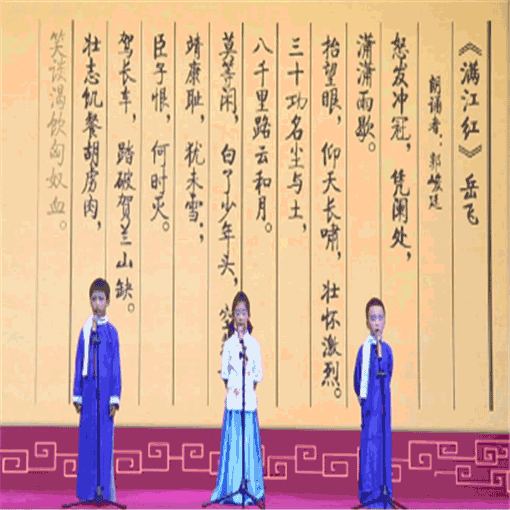 《满江红》岳飞
朗诵者：郭峻廷
怒发冲冠，凭阑处，
潇潇雨歇。
抬望眼，仰天长啸，壮怀激烈。
三十功名尘与土，
八千里路云和月。
莫等闲，白了少年头，空
靖康耻，犹未雪；
臣子恨，何时灭。
驾长车，踏破贺兰山缺。
壮志饥餐胡虏肉，
笑谈渴饮匈奴血。